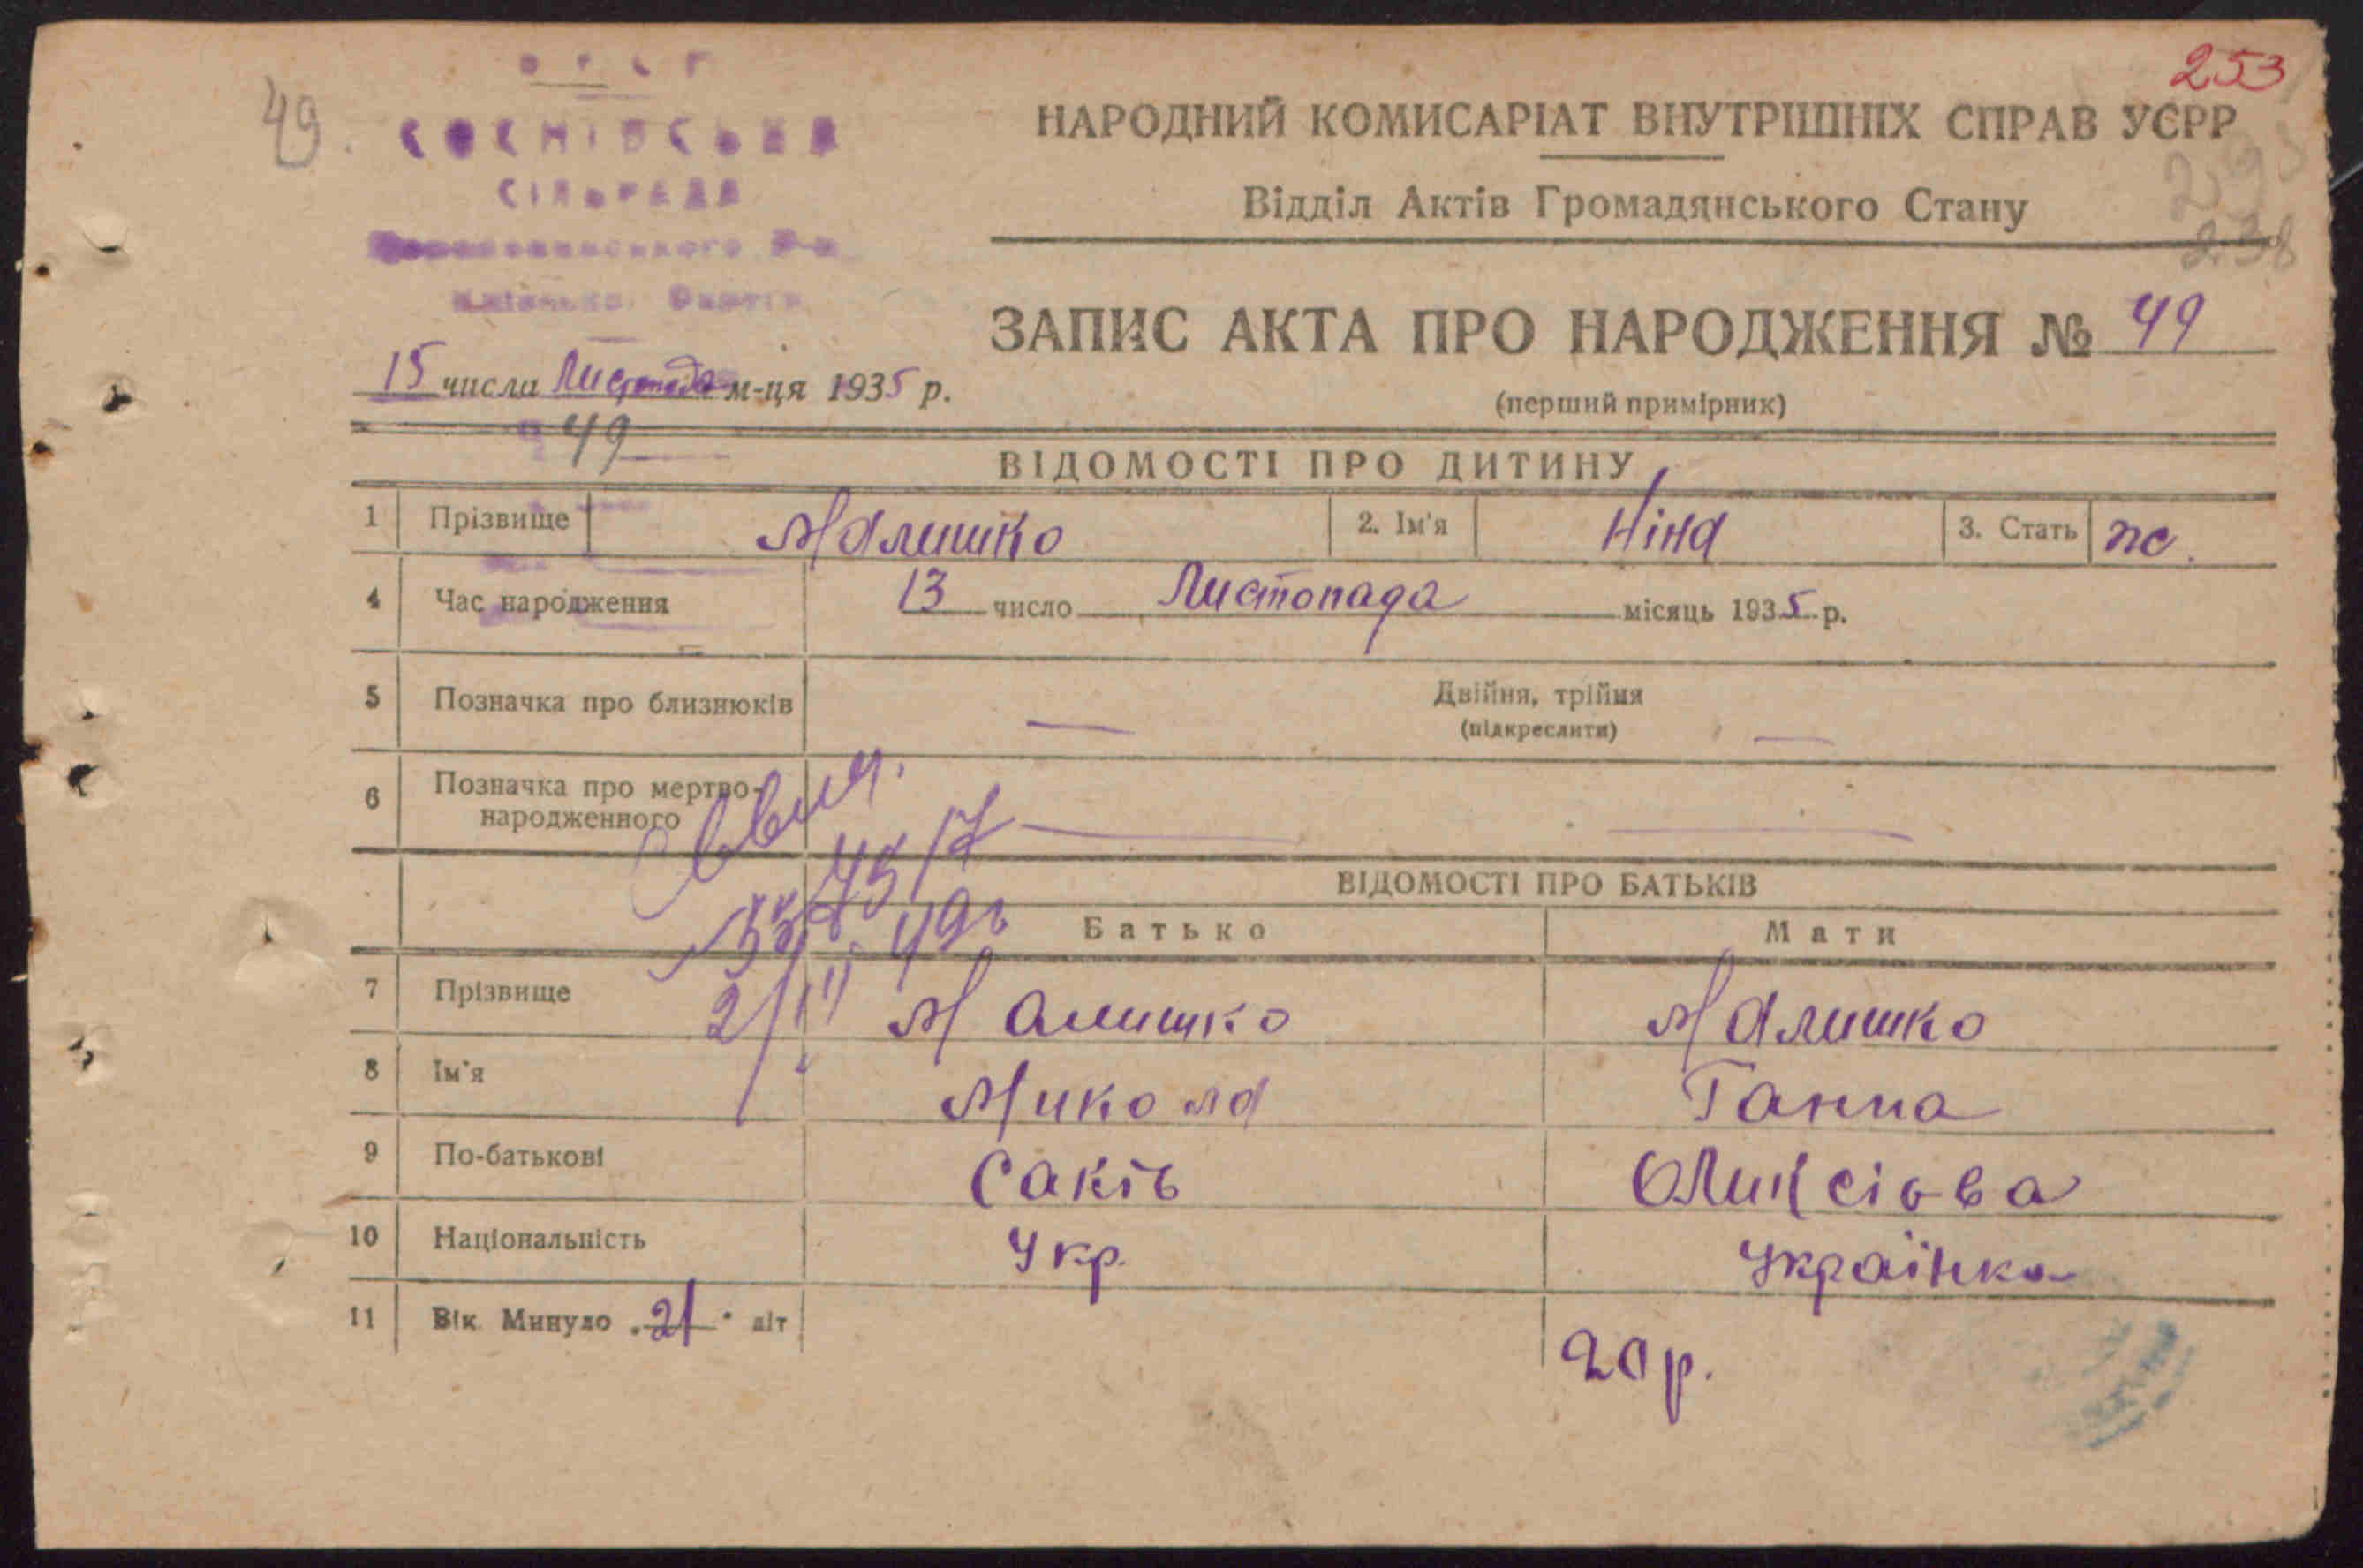 УРСР
СОСНІВСЬКА
СІЛЬРАДА
253
49.
НАРОДНИЙ КОМИСАРІАТ ВНУТРІШНІХ СПРАВ УСРР
Відділ Актів Громадянського Стану
238
ЗАПИС АКТА ПРО НАРОДЖЕННЯ № 49
15 числа Листопада м-ця 1935 р.
(перший примірник)
49
ВІДОМОСТІ ПРО ДИТИНУ
1 Прізвище Малишко 2. Ім'я Ніна 3. Стать ж.
4 Час народження 13 число Листопада місяць 1935 р.
5 Позначка про близнюків — Двійня, трійня —
(підкреслити)
6 Позначка про мертво-
народженного — —
ВІДОМОСТІ ПРО БАТЬКІВ
Батько Мати
7 Прізвище Малишко Малишко
8 Ім'я Микола Ганна
9 По-батькові Саків Оликсіова
10 Національність Укр. Українка
11 Вік. Минуло „21" літ 20 р.